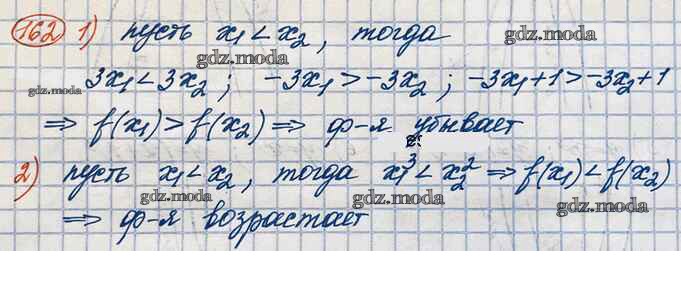 162 1) пусть x₁ < x₂, тогда
gdz.moda
gdz.moda
3x₁ < 3x₂ ; -3x₁ > -3x₂ ; -3x₁+1 > -3x₂+1
gdz.moda
⇒ f(x₁) > f(x₂) ⇒ ф-я убывает
gdz.moda
2) пусть x₁ < x₂, тогда x₁³ < x₂² ⇒ f(x₁) < f(x₂)
gdz.moda
gdz.moda
gdz.moda
⇒ ф-я возрастает